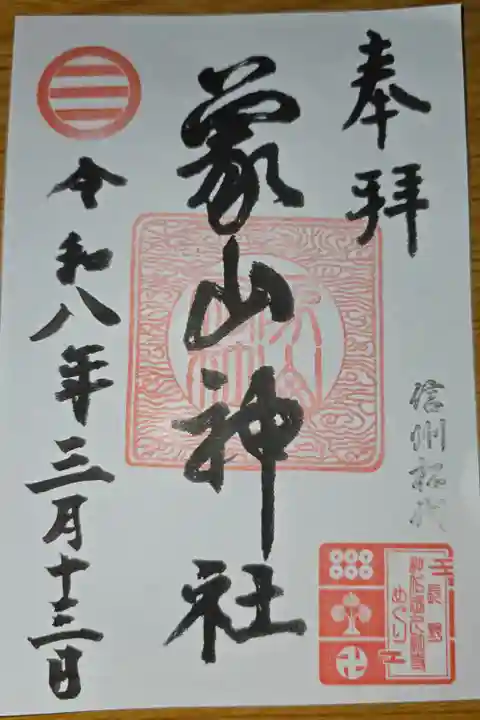 奉拝
信州松代
象山神社
令和八年三月十三日